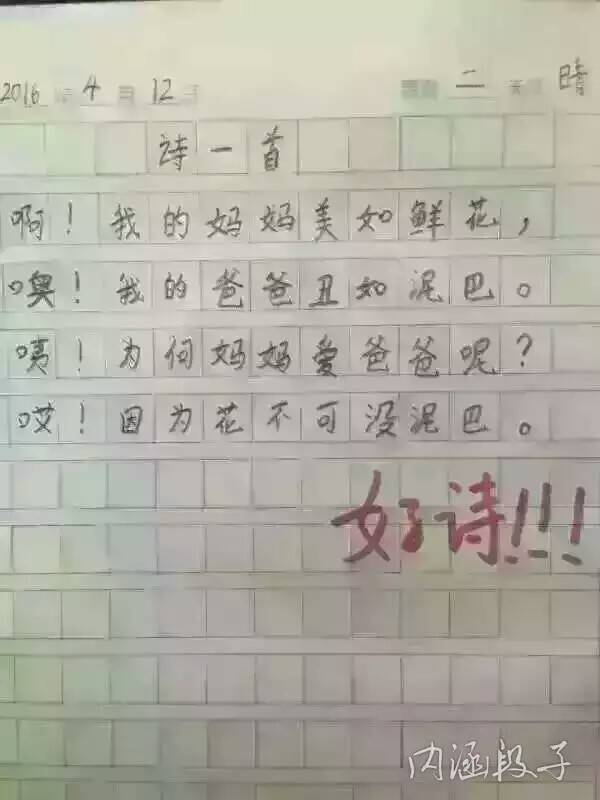 2016年4月12日 星期二 天气晴
诗一首
啊！我的妈妈美如鲜花，
噢！我的爸爸丑如泥巴。
咦！为何妈妈爱爸爸呢？
哎！因为花不可没泥巴。
好诗!!!
内涵段子